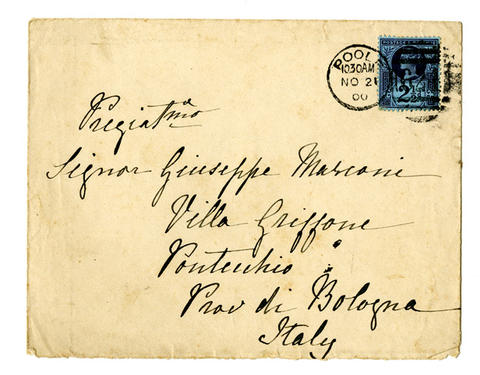 POOLE
10.30AM
NO 2
00
2½
Pregiatmo
Signor Giuseppe Marconi
Villa Griffone
Pontecchio
Prov di Bologna
Italy